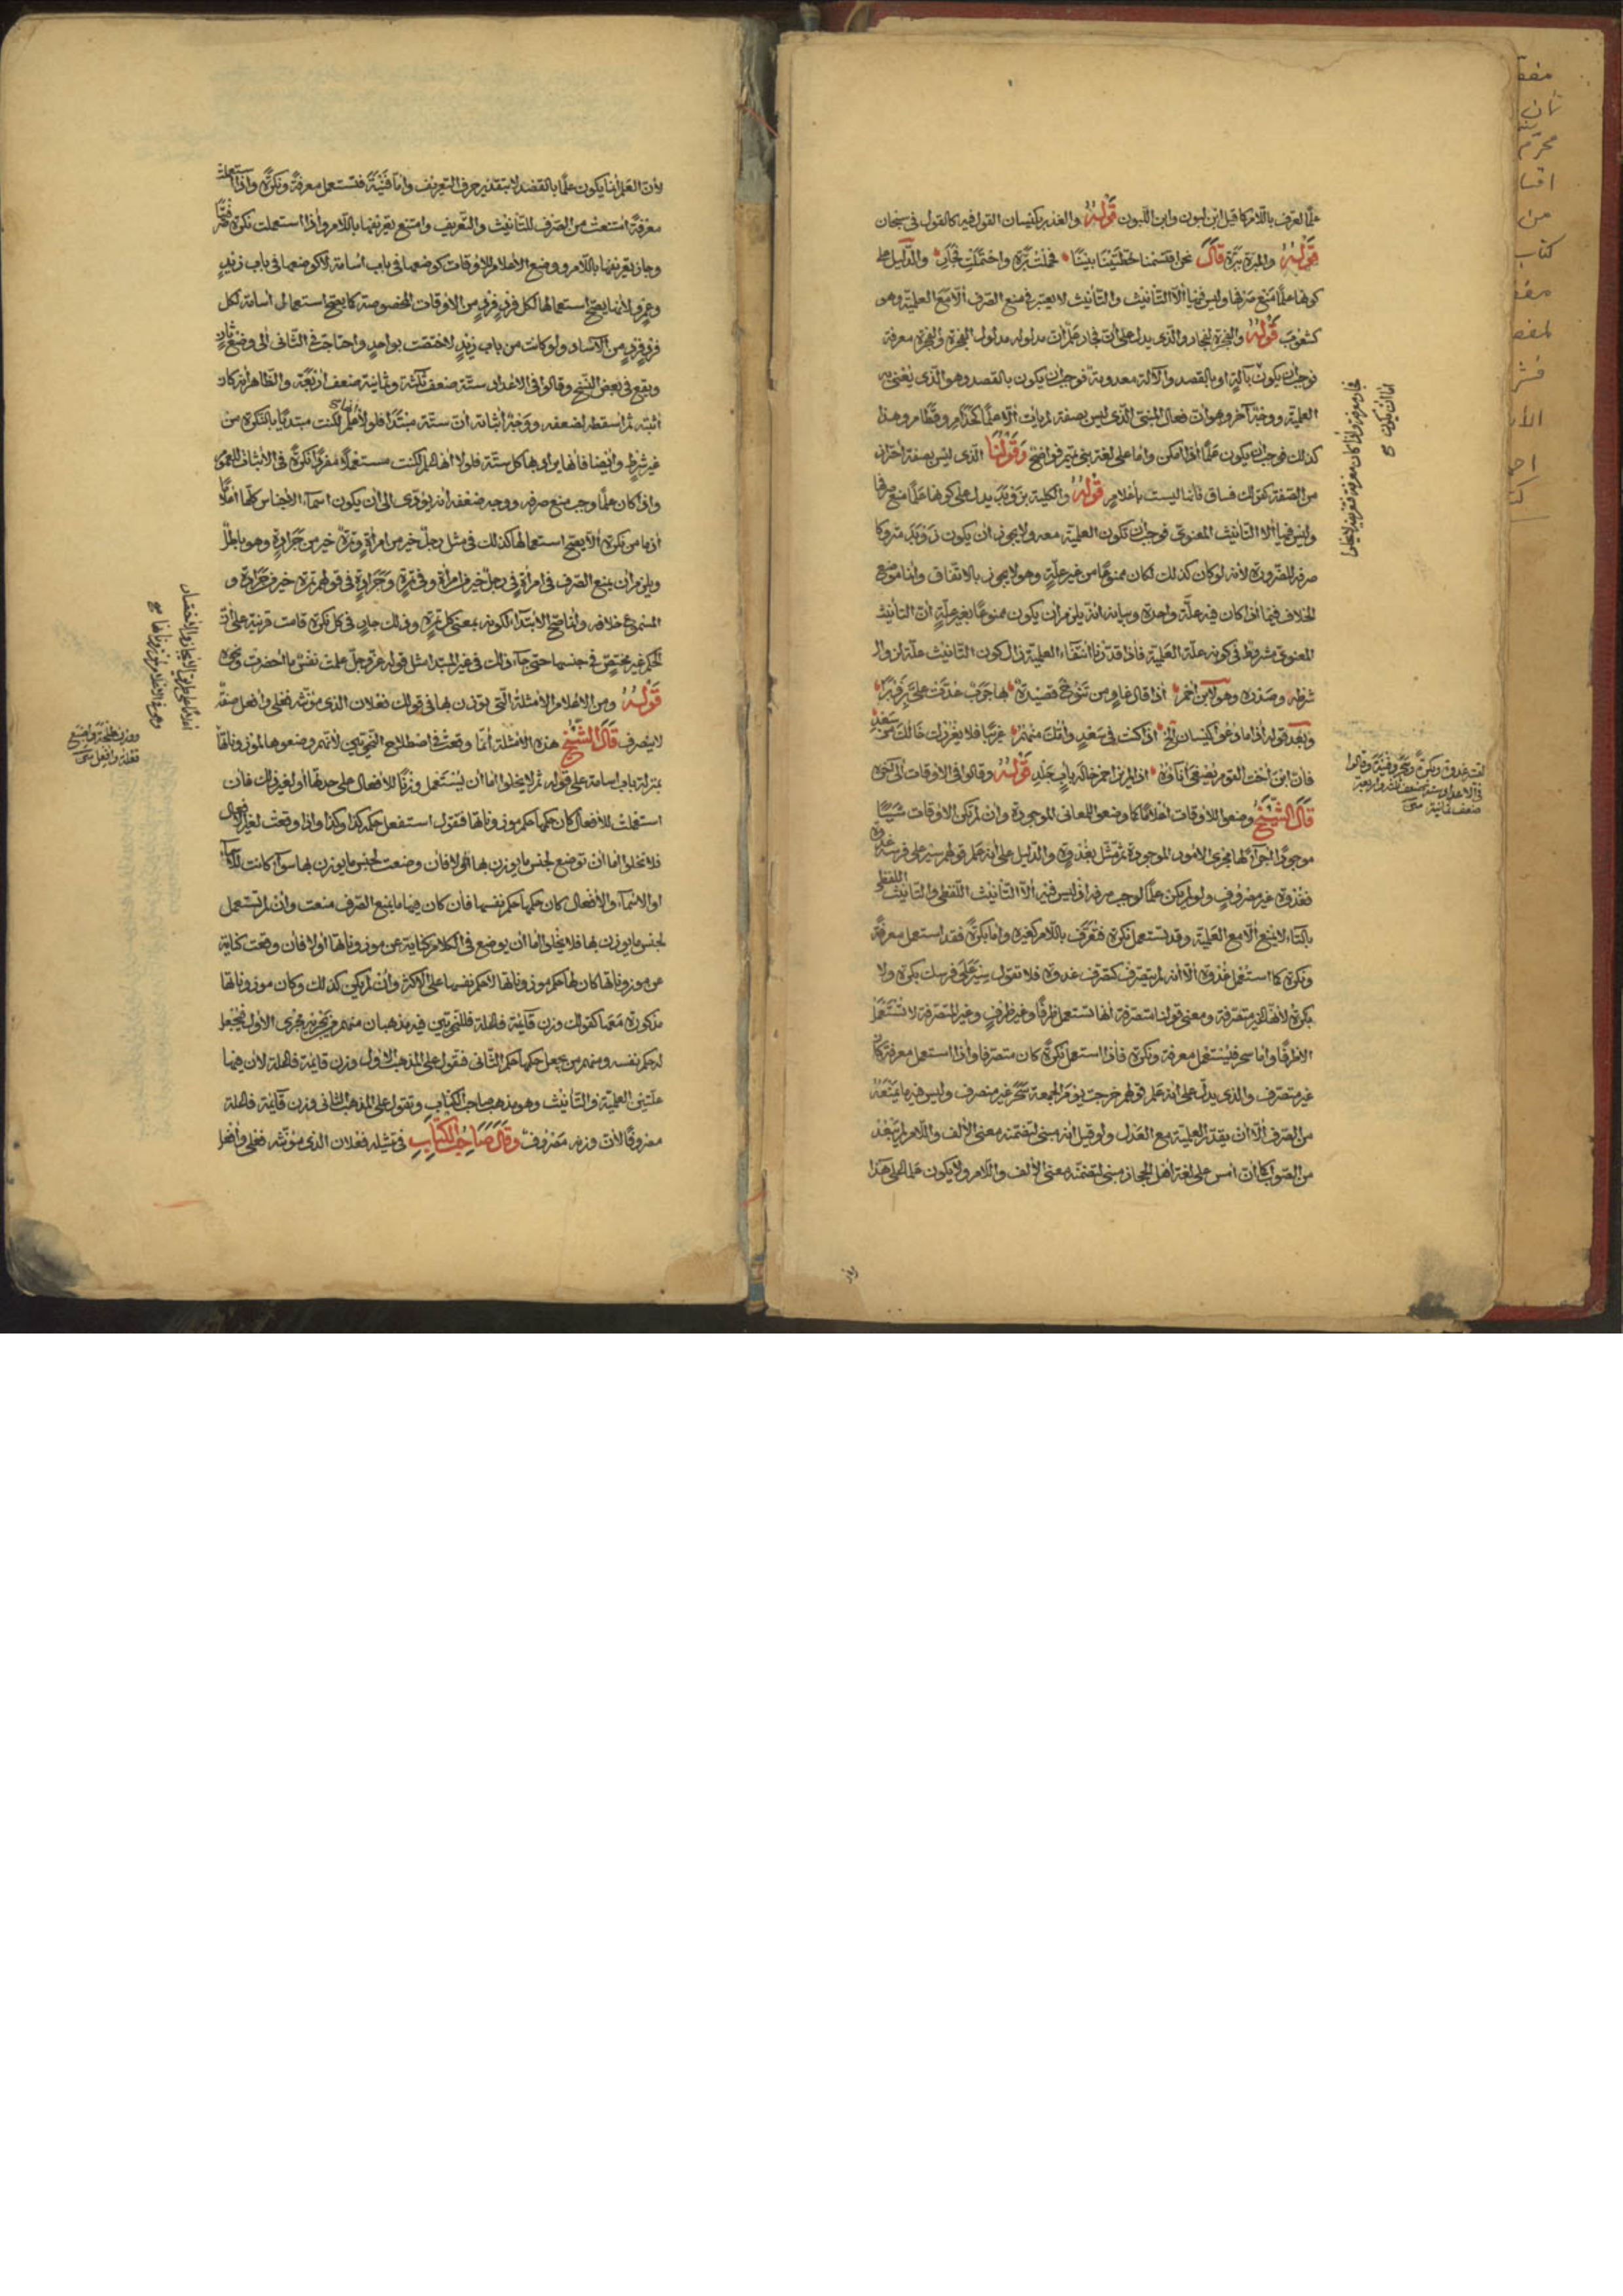 علما المعرف باللام كما قيل ابن لبون وابن اللبون قوله والغدر بكيسان القول فيه كالقول في سبحان
قوله والمبرة ببرة قال نحن اقتسمنا خطتينا بيننا فحملت برة واحتملت فجار والدليل على
كونها علما منع صرفها وليس فيها الا التأنيث والتأنيث لا يعتبر في منع الصرف الا مع العلمية وهو
كشعوب قوله والفجرة بفجار والذي يدل على أن فجار علم أن مدلوله مدلول الفجرة والفجرة معرفة
فوجب أن يكون بآلة او بالقصد والآلة معدومة فوجب أن يكون بالقصد وهو الذي نعني به
العلمية ووجه آخر وهو أن فعال المبني الذي ليس بصفة لم يأت الا علما كحذام وقطام وهذا
كذلك فوجب أن يكون علما اذا أمكن واما على لغة بني تميم فواضح وقولنا الذي ليس بصفة احتراز
من الصفة كقولك فساق فانها ليست بأعلام قوله والكلية بزوبر يدل على كونها علما منع صرفها
وليس فيها الا التأنيث المعنوي فوجب أن تكون العلمية معه ولا يجوز أن يكون زوبر متروكا
صرفه للضرورة لأنه لو كان كذلك لكان ممنوعا من غير علة وهو لا يجوز بالاتفاق وانما موضع
الخلاف فيما اذا كان فيه علة واحدة وبيانه انه يلزم أن يكون ممنوعا بغير علة أن التأنيث
المعنوي مشروط في كونه علة العلمية فاذا قدرنا انتفاء العلمية زال كون التأنيث علة لزوال
شرطه وصدره وهو لابن أحمر اذا قال غاو من تنوخ قصيدة بها جرب عدت علي بزوبرا
وبعد قوله اذا ما دعوا كيسان الخ اذا كنت في سعد وأمك منهم غريبا فلا يغررك خالك من سعد
فان ابن أخت القوم مصغى اناؤه اذا لم يزاحم خاله بأب جلد قوله وقالوا في الاوقات الى آخره
قال الشيخ وضعوا للاوقات أعلاما كما وضعوا للمعاني الموجودة وان لم تكن الاوقات شيئا
موجودا اجراء لها مجرى الامور الموجودة ثم مثل بغدوة والدليل على أنه علم قولهم سير على فرسه غدوة
فغدوة غير مصروف ولو لم يكن علما لوجب صرفه اذ ليس فيه الا التأنيث اللفظي والتأنيث اللفظي
بالتاء لا يمنع الا مع العلمية وقد تستعمل نكرة فتعرف باللام كغيره واما بكرة فقد استعمل معرفة
ونكرة كما استعمل غدوة الا أنه لم يتصرف كتصرف غدوة فلا تقول سير على فرسك بكرة ولا
بكرة لأنها غير متصرفة ومعنى قولنا متصرفة أنها تستعمل ظرفا وغير ظرف وغير المتصرفة لا تستعمل
الا ظرفا واما سحر فيستعمل معرفة ونكرة فاذا استعمل نكرة كان متصرفا واذا استعمل معرفة كان
غير متصرف والذي يدل على أنه علم قولهم خرجت يوم الجمعة سحر غير منصرف وليس فيه ما يمنعه
من الصرف الا أن يقدر العلمية مع العدل ولو قيل انه مبني لتضمنه معنى الألف واللام لم يبعد
من الصواب كما أن أمس على لغة أهل الحجاز مبني لتضمنه معنى الألف واللام ولا يكون علما على هذا
لأن العلم انما يكون علما بالقصد لا بتقدير حرف التعريف واما فينة فتستعمل معرفة ونكرة واذا استعملت
معرفة امتنعت من الصرف للتأنيث والتعريف وامتنع تعريفها باللام واذا استعملت نكرة
وجاز تعريفها باللام ووضع الأعلام للاوقات كوضعها في باب أسامة لا كوضعها في باب زيد
وعمرو لأنها يصح استعمالها لكل فرد فرد من الاوقات المخصوصة كما يصح استعمال أسامة لكل
فرد فرد من الآساد ولو كانت من باب زيد لاختصت بواحد واحتاجت في الثاني الى وضع ثان
ويقع في بعض النسخ وقالوا في الاعداد ستة ضعف ثلثة وثمانية ضعف أربعة والظاهر أنه كان
أثبته ثم أسقطه لضعفه ووجه اثباته أن ستة مبتدأ فلولا أنها علم لكنت مبتدئا بالنكرة من
غير شرط وأيضا فانها يراد بها كل ستة فلولا أنها علم لكنت مستعملا مفردا نكرة في الأثبات للعموم
واذا كان علما وجب منع صرفه ووجه ضعفه أنه يؤدي الى أن يكون أسماء الأجناس كلها أعلاما
اذ ما من نكرة الا يصح استعمالها كذلك في مثل رجل خير من امرأة وتمرة خير من جرادة وهو باطل
ويلزم أن يمنع الصرف في امرأة في رجل خير من امرأة وفي تمرة وجرادة في قولهم تمرة خير من جرادة و
المسموع خلافه وانما صح الابتداء لكونه بمعنى كل تمرة وذلك جار في كل نكرة قامت قرينة على أن
الحكم غير مختص في جنسها حتى جاء ذلك في غير المبتدا مثل قوله عز وجل علمت نفس ما أحضرت ونحوه
قوله ومن الاعلام الأمثلة التي توزن بها في قولك فعلان الذي مؤنثه فعلى وأفعل صفة
لا ينصرف قال الشيخ هذه الأمثلة انما وقعت في اصطلاح النحويين لأنهم وضعوها لموزوناتها
بمنزلة باب أسامة على قوله ثم لا يخلو اما أن يستعمل وزنا للأفعال على حدتها أو لغير ذلك فان
استعملت للأفعال كان حكمها حكم موزوناتها فتقول استفعل حكمه كذا وكذا واذا وقعت لغير الأفعال
فلا تخلو اما أن توضع لجنس ما يوزن بها أو لا فان وضعت لجنس ما يوزن بها سواء كانت للأسماء
او الاسماء والأفعال كان حكمها حكم نفسها فان كان فيها ما يمنع الصرف منعت وان لم تستعمل
لجنس ما يوزن بها فلا يخلو اما أن يوضع في الكلام كناية عن موزوناتها أو لا فان وقعت كناية
عن موزوناتها كان لها حكم موزوناتها لا حكم نفسها على الأكثر وان لم يكن كذلك وكان موزوناتها
مذكورة معها كقولك وزن قائمة فاعلة فللنحويين فيه مذهبان منهم من يجريه مجرى الأول فيجعل
له حكم نفسه ومنهم من يجعل حكمها حكم الثاني فتقول على المذهب الأول وزن قائمة فاعلة لأن فيها
علتين العلمية والتأنيث وهو مذهب صاحب الكتاب وتقول على المذهب الثاني وزن قائمة فاعلة
مصروفا لأن وزنه مصروف وقال صاحب الكتاب في مثيله فعلان الذي مؤنثه فعلى وأفعل